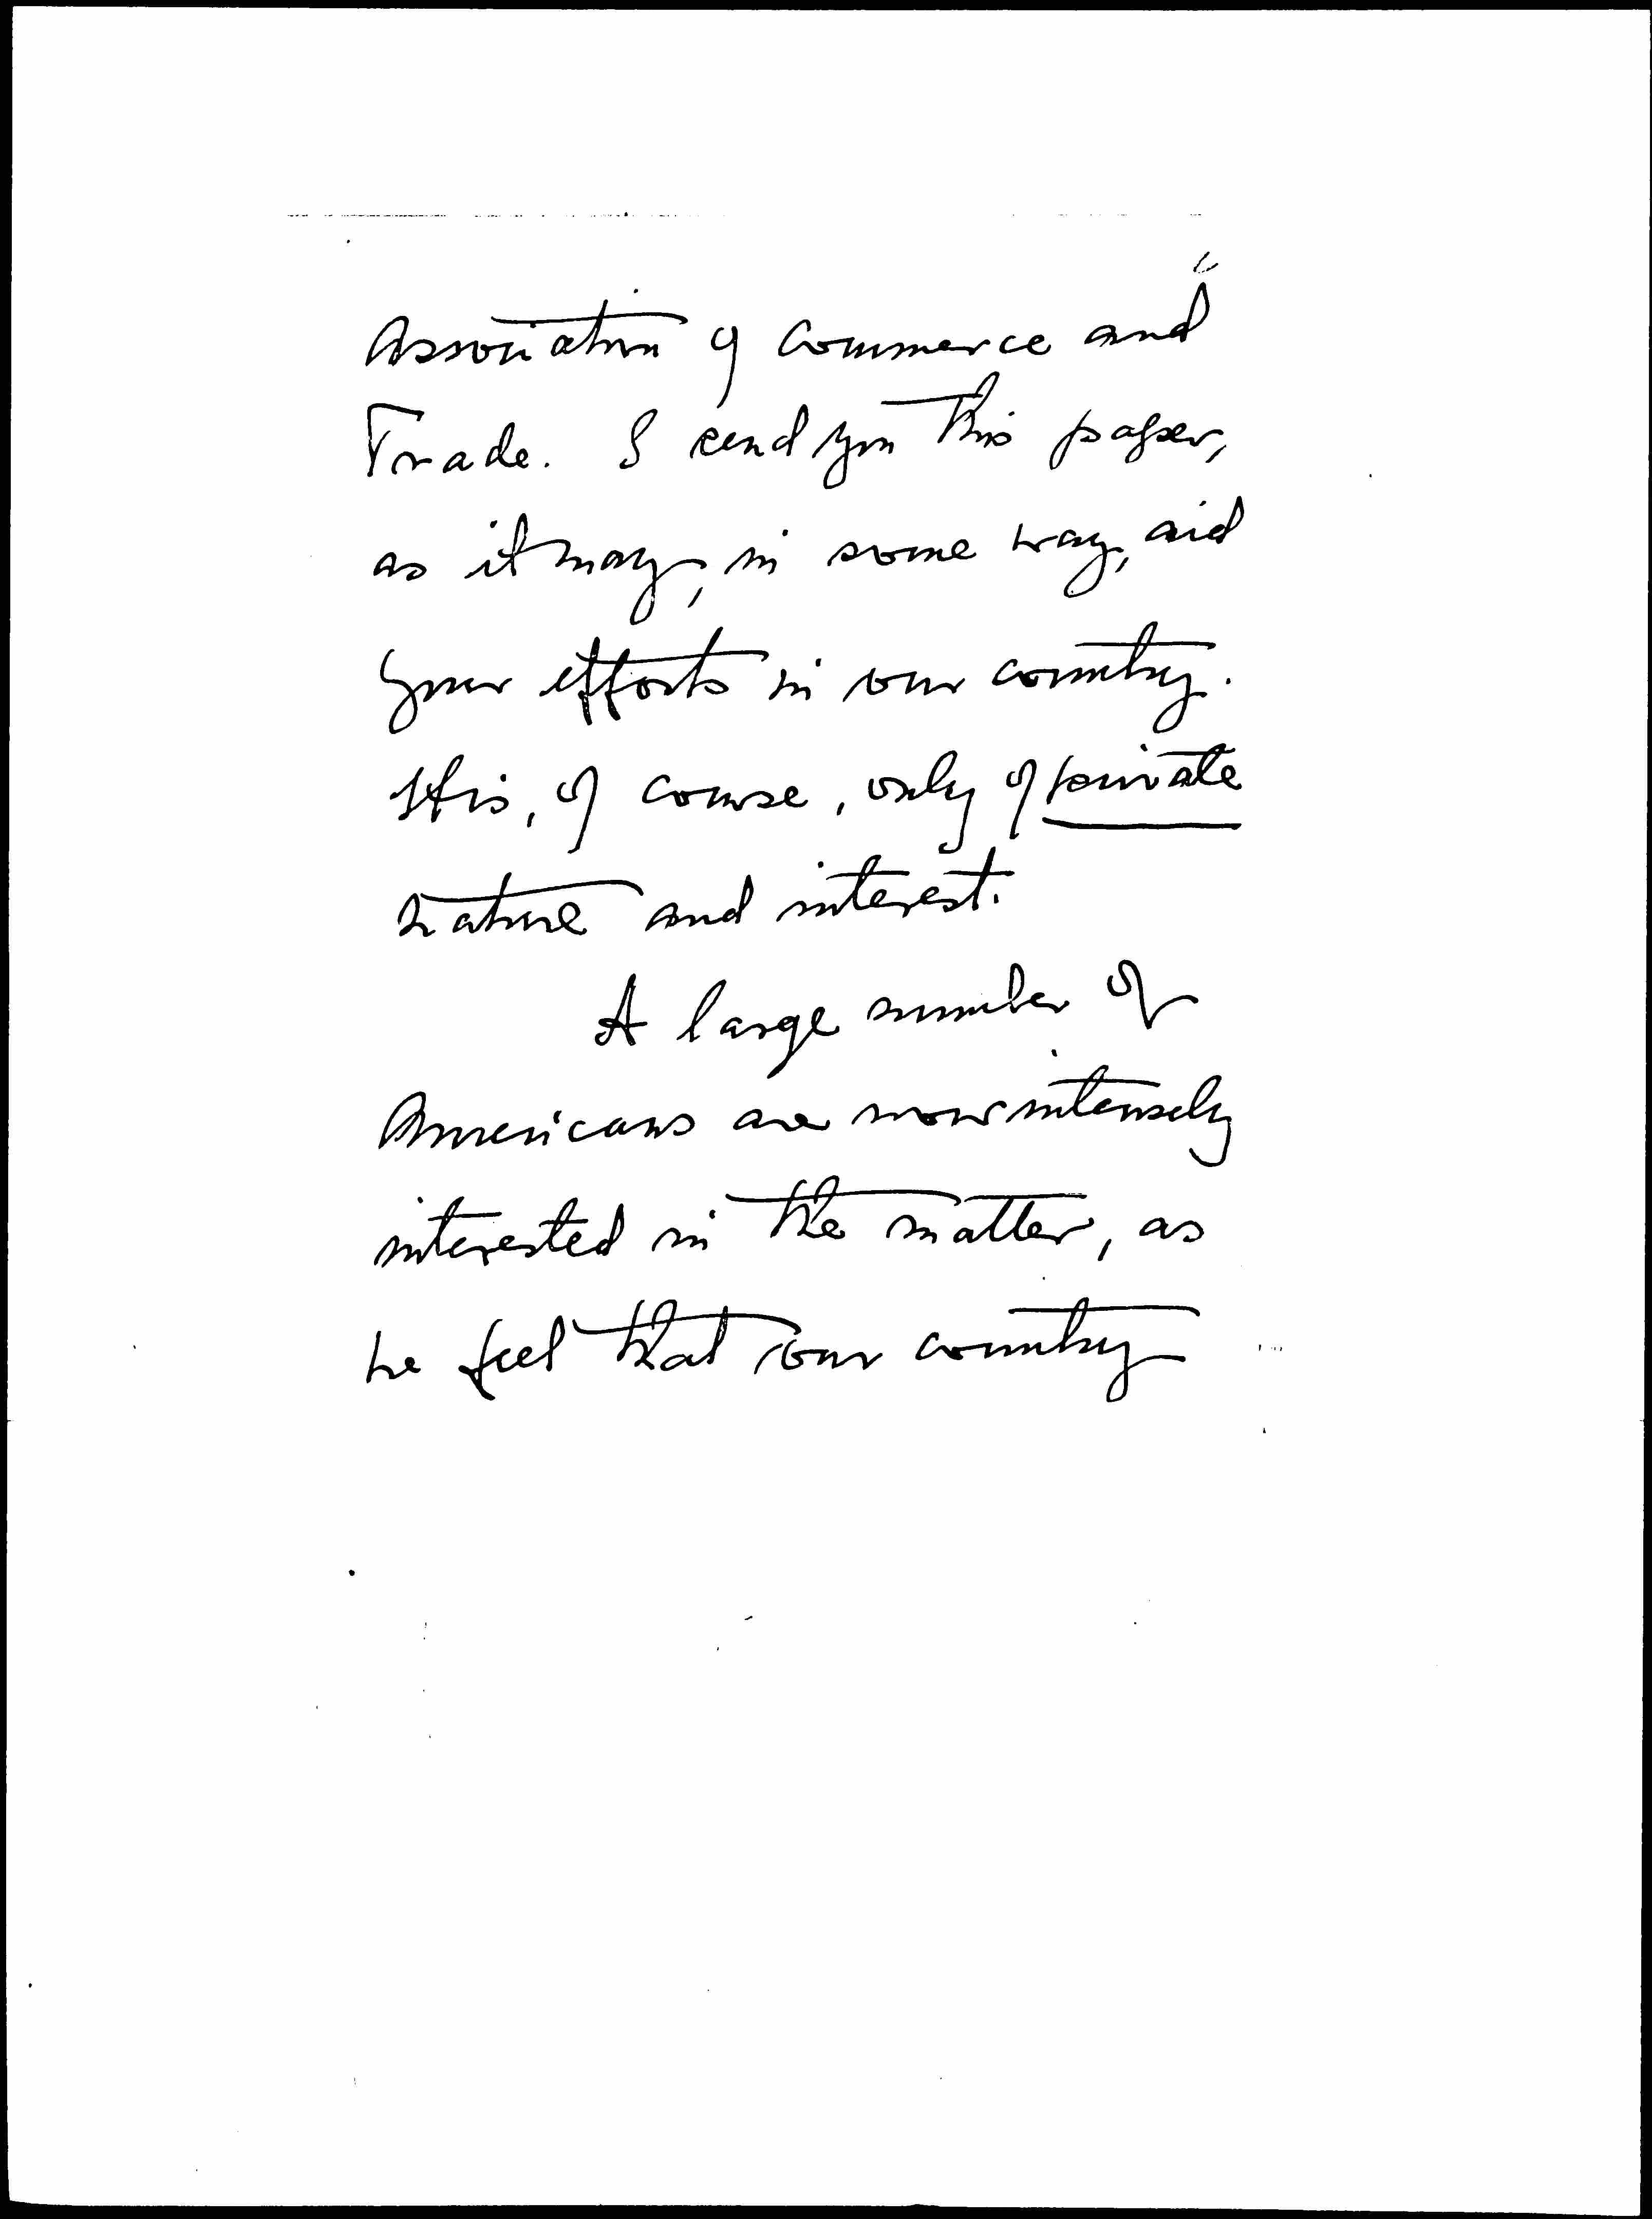 Association of Commerce and
Trade. I send you this paper,
as it may, in some way, aid
your efforts in our country.
It is, of course, only of private
nature and interest.
A large number of
Americans are now intensely
interested in the matter, as
we feel that our country